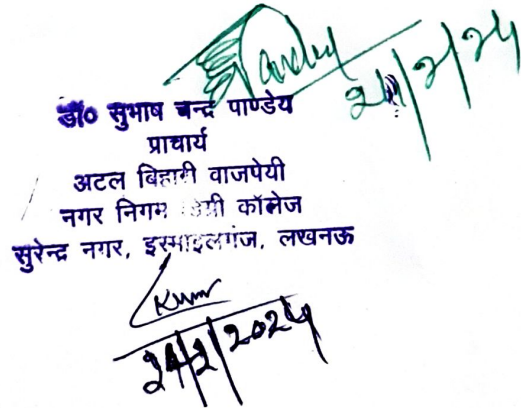 डॉ० सुभाष चन्द्र पाण्डेय
प्राचार्य
अटल बिहारी वाजपेयी
नगर निगम डिग्री कॉलेज
सुरेन्द्र नगर, इस्माइलगंज, लखनऊ
24/2/2024